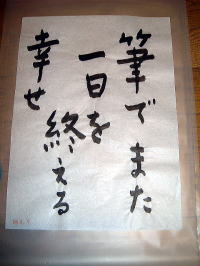 筆でまた
一日を
終える
幸せ